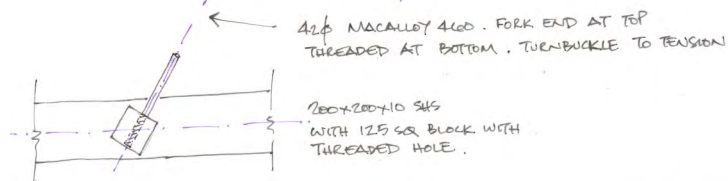 42ϕ MACALLOY 460. FORK END AT TOP
THREADED AT BOTTOM. TURNBUCKLE TO TENSION
200x200x10 SHS
WITH 125 SQ BLOCK WITH
THREADED HOLE.